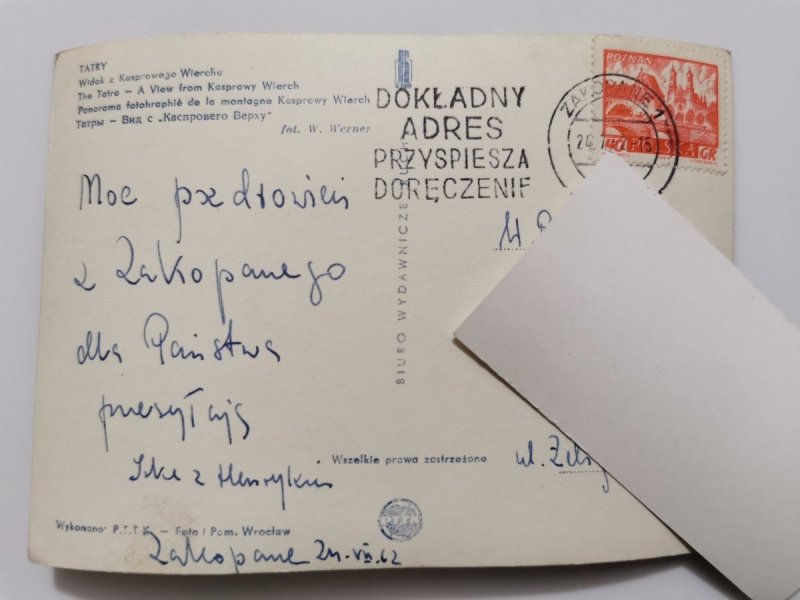 TATRY
Widok z Kasprowego Wierchu
The Tatra — A View from Kasprowy Wierch
Panorama fotohraphiè de la montagne Kasprowy Wierch
Татры — Вид с „Каспрового Верху"
fot. W. Werner
DOKŁADNY
ADRES
PRZYSPIESZA
DORĘCZENIE
POZNAŃ
ZAKOPANE 1
40 POLSKA GR
Moc pozdrowień
z Zakopanego
dla Państwa
przesyłają
z Henrykiem
BIURO WYDAWNICZE RUCH
Wszelkie prawa zastrzeżone
ul.
Wykonano: P.T.T.K. — Foto i Pam. Wrocław
Zakopane 24.VII.62